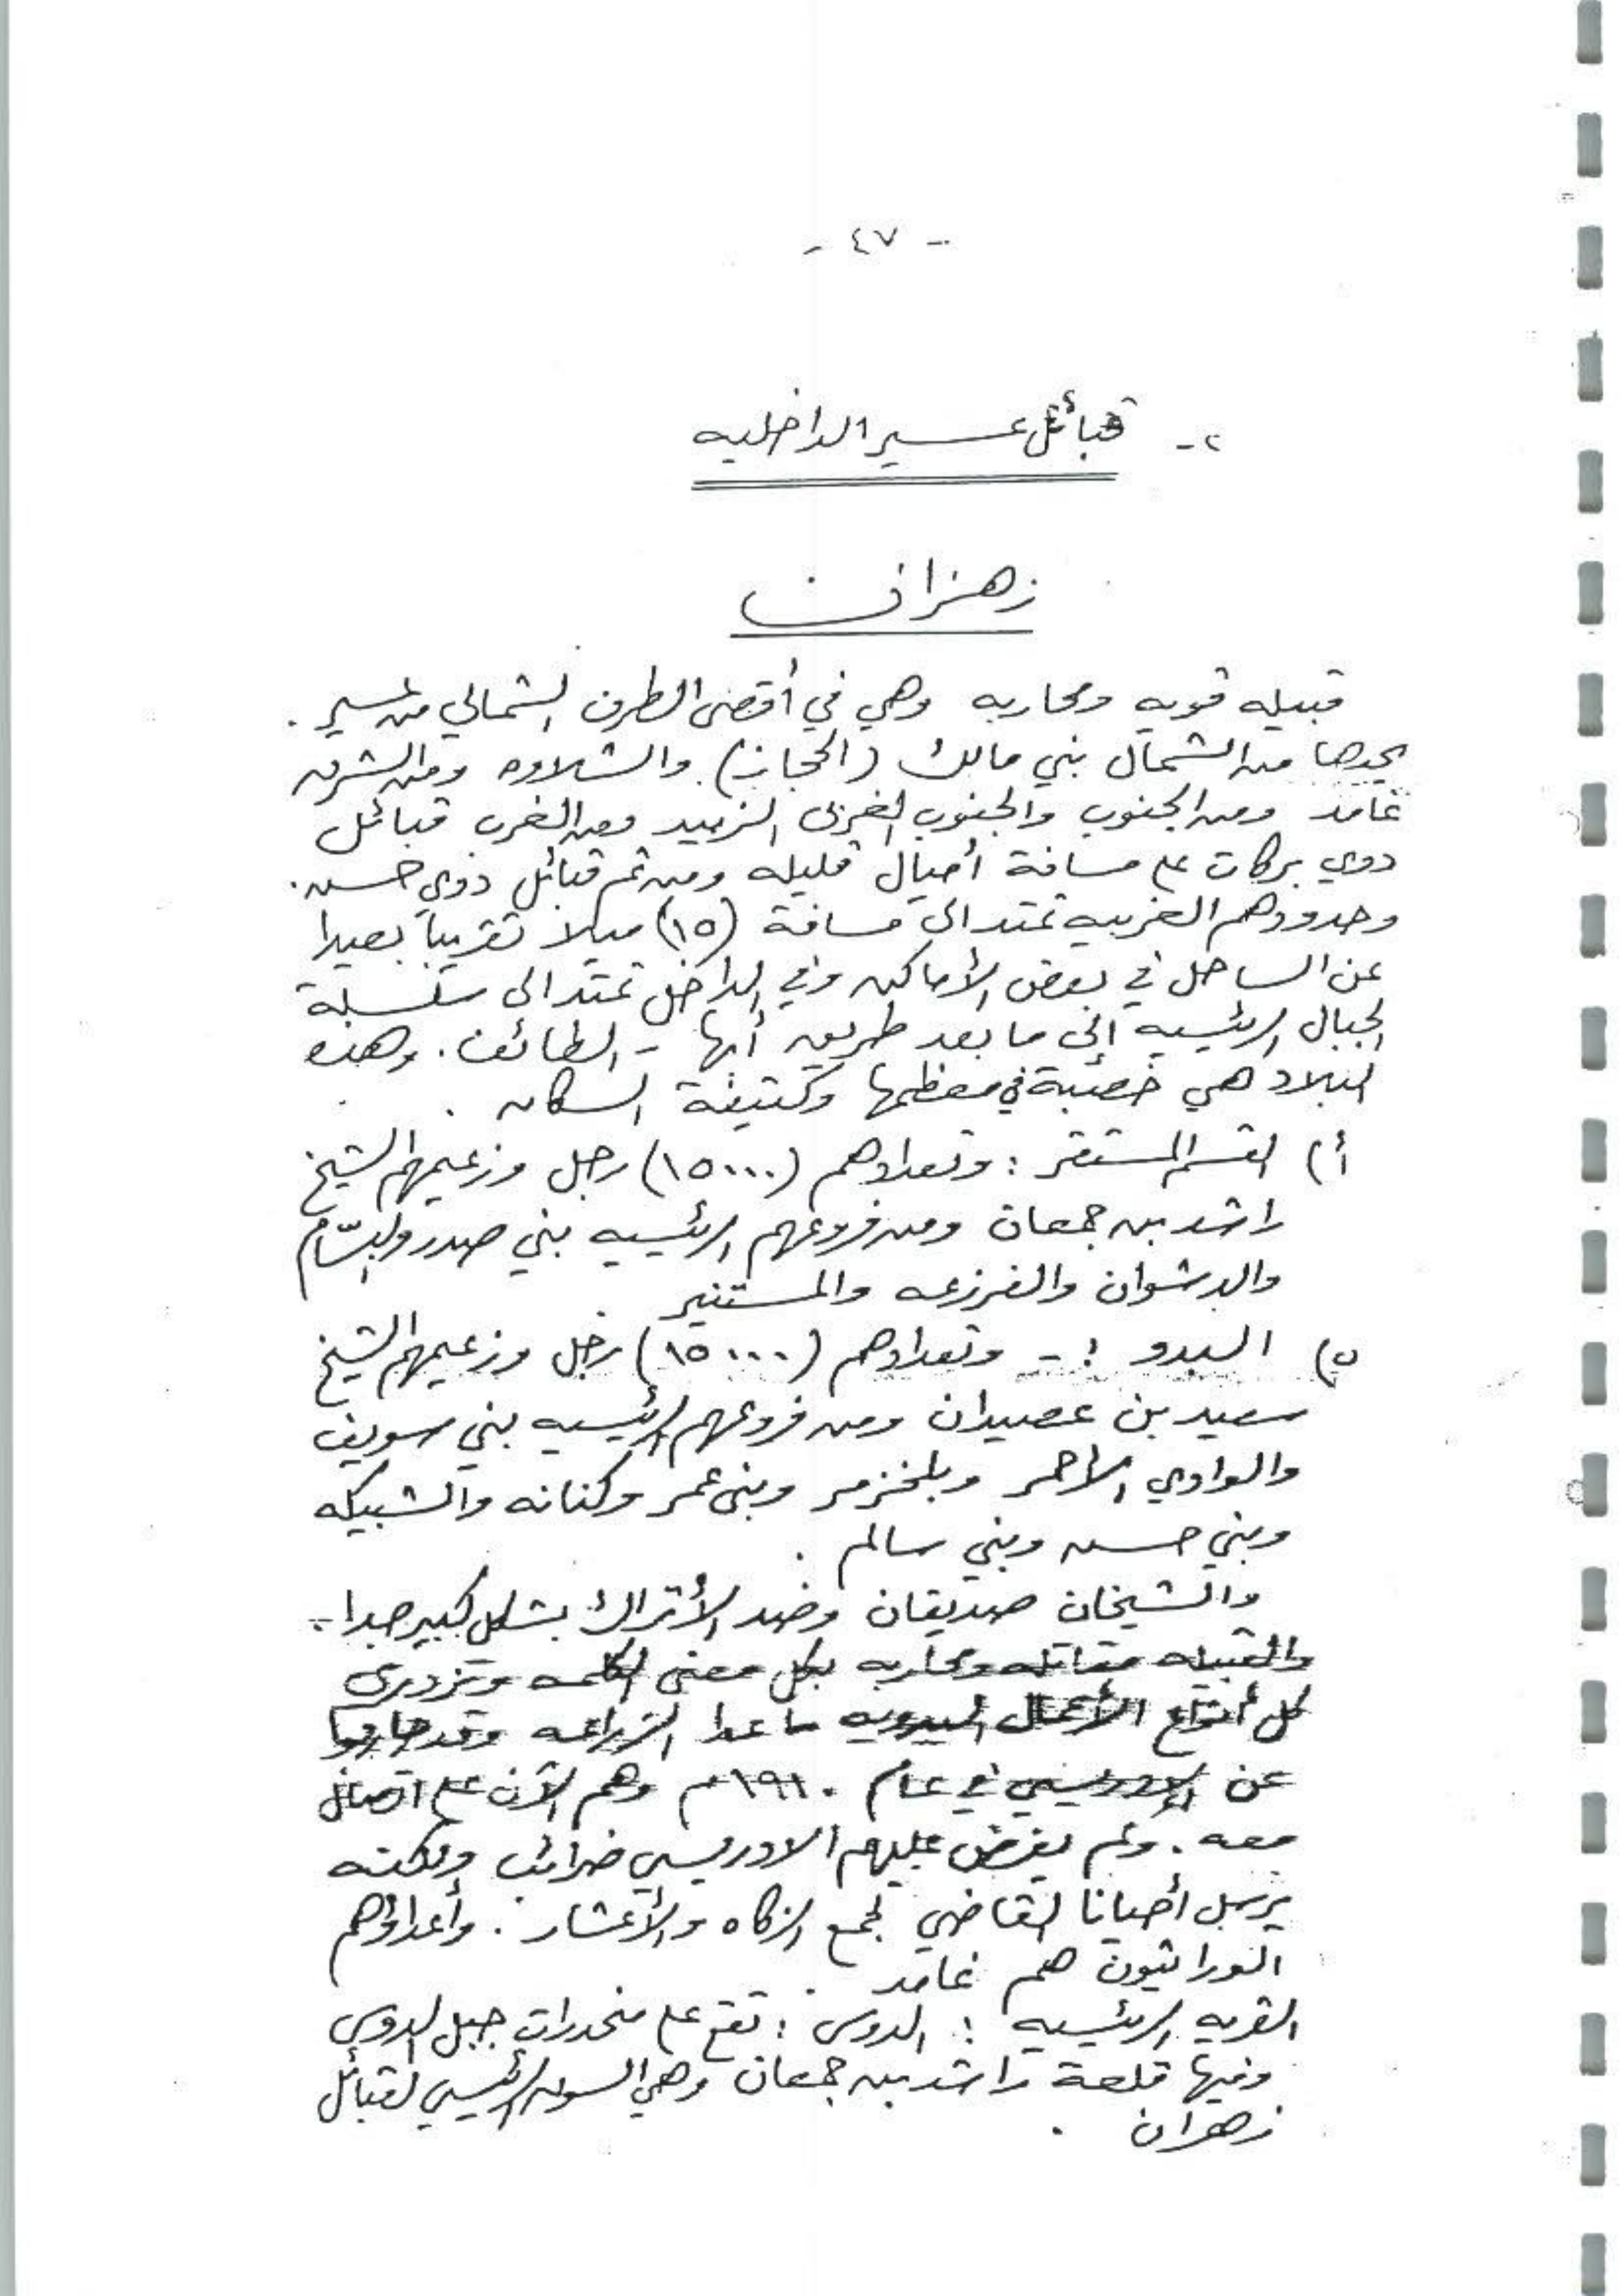 - ٤٧ -
٢- قبائل عسير الداخليه
زهران
قبيله قويه ومحاربه وهي في أقصى الطرف الشمالي من عسير .
يحدها من الشمال بني مالك (الحجاز) والشلاوه ومن الشرق
غامد ومن الجنوب والجنوب الغربى الزبيد ومن الغرب قبائل
ذوي بركات على مسافة أميال قليله ومن ثم قبائل ذوي حسن .
وحدودهم الغربيه تمتد الى مسافة (١٥) ميلا تقريباً بعيدا
عن الساحل في بعض الأماكن وفي الداخل تمتد الى سلسلة
الجبال الرئيسيه إلى ما بعد طريق أبها - الطائف . وهذه
البلاد هي خصبة في معظمها وكثيفة السكان .
أ) القسم المستقر : وتعدادهم (١٥٠٠٠) رجل وزعيمهم الشيخ
راشد بن جمعان ومن فروعهم الرئيسيه بني صدر والبسّام
والدشوان والفرزعه والمستنير
ب) البدو :- وتعدادهم (١٥٠٠٠) رجل وزعيمهم الشيخ
سعيد بن عصيدان ومن فروعهم الرئيسيه بني سويف
والوادي الأحمر وبلخزمر وبنى عمر وكنانه والشبيكه
وبني حسن وبني سالم .
والشيخان صديقان وضد الأتراك بشكل كبير جدا .
والقبيله مقاتله ومحاربه بكل معنى الكلمه وتزدرى
كل أنواع الأعمال اليدويه ما عدا الزراعه وقد حاربوا
عن الإدريسي في عام ١٩١٠م وهم الآن على اتصال
معه . ولم يفرض عليهم الادريسي ضرائب ولكنه
يرسل أحيانا القاضي لجمع الزكاه والأعشار . وأعداؤهم
الوراثيون هم غامد .
القريه الرئيسيه : الدوس : تقع على منحدرات جبل الدوس
وفيها قلعة راشد بن جمعان وهي السوق الرئيسي لقبائل
زهران .